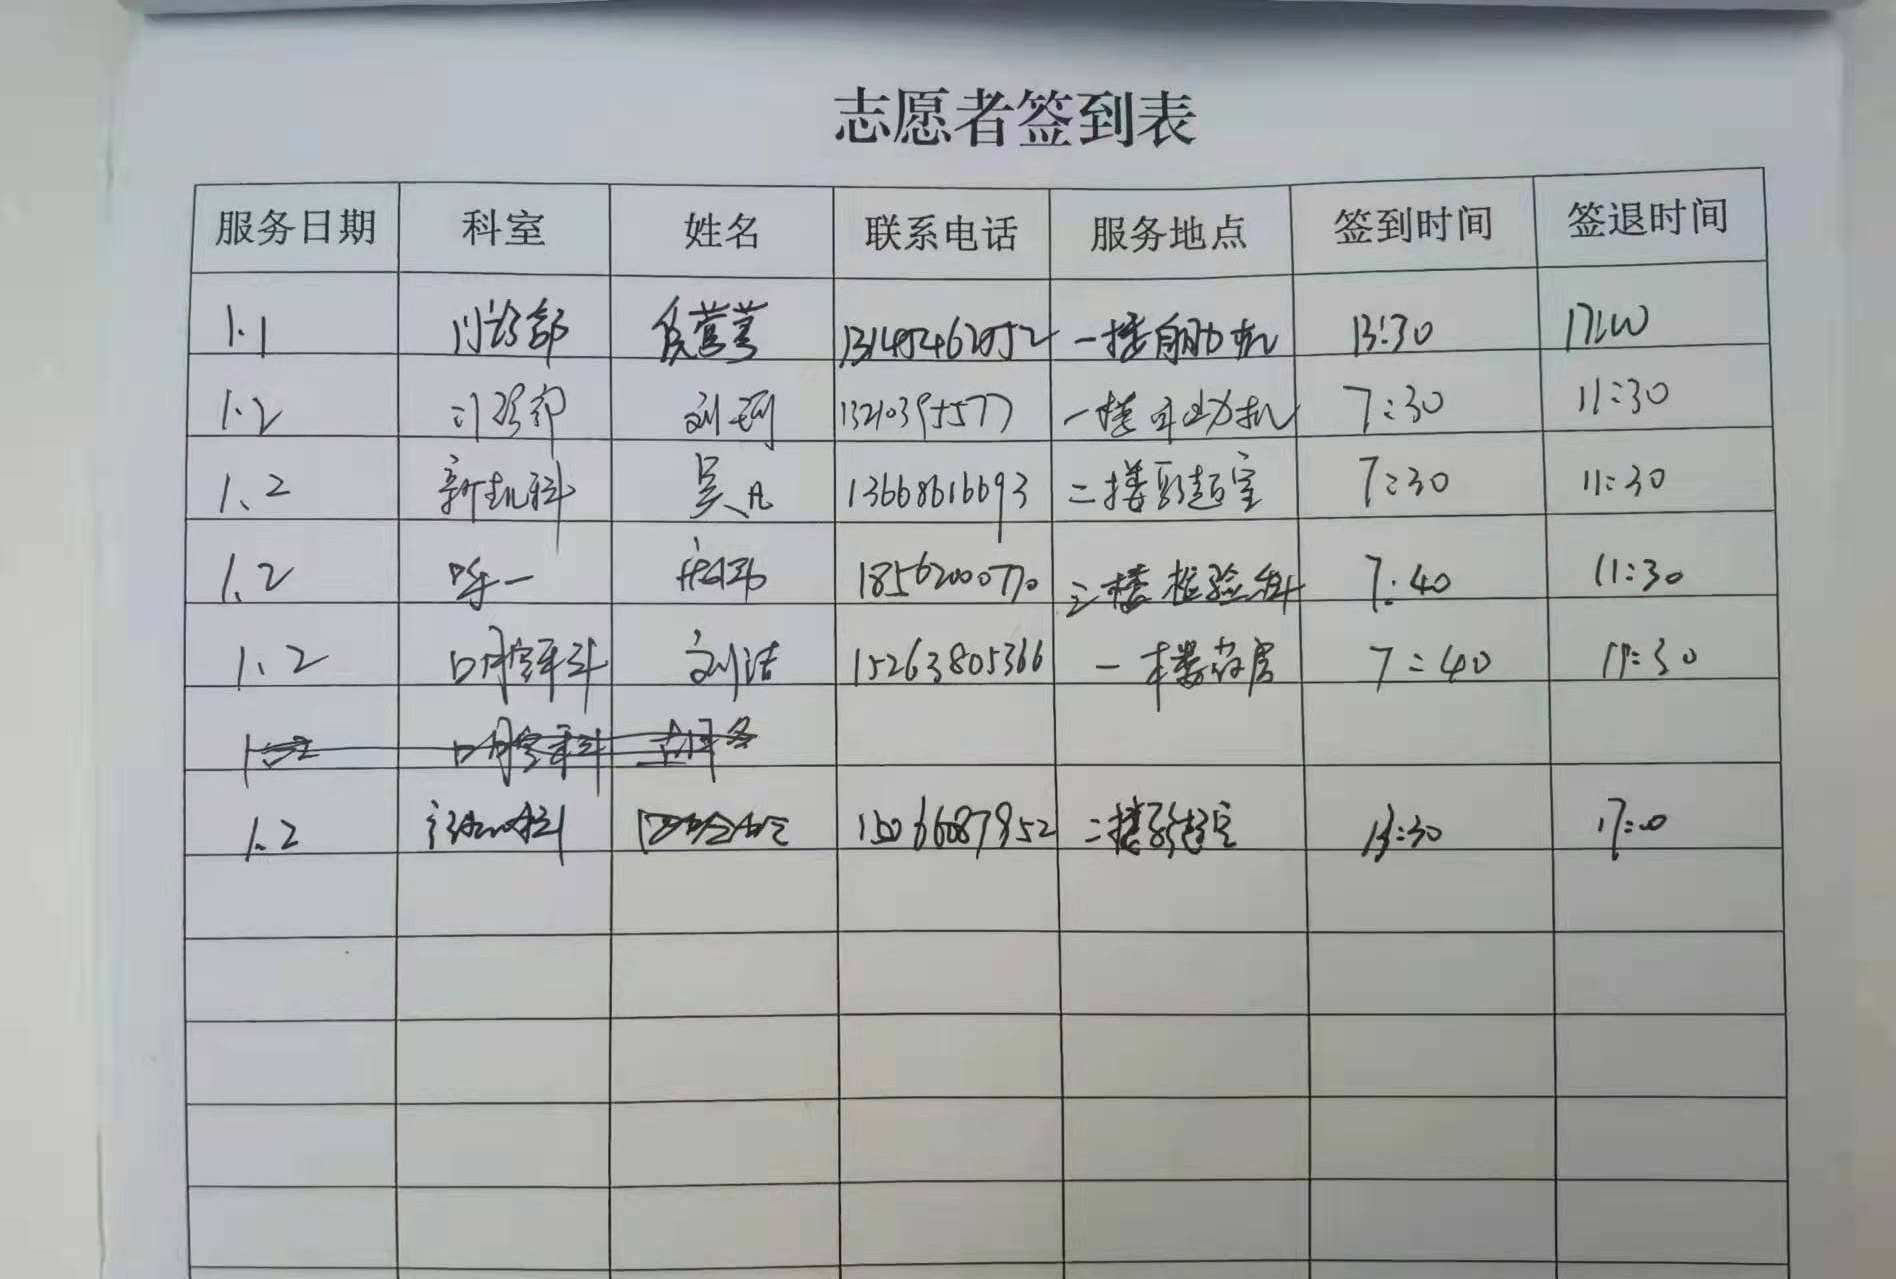 志愿者签到表
服务日期 科室 姓名 联系电话 服务地点 签到时间 签退时间
1.1 门诊部 一楼自助机 13:30 17:00
1.2 门诊部 刘珂 13210395577 一楼自助机 7:30 11:30
1.2 吴凡 13668616693 二楼彩超室 7:30 11:30
1.2 呼一 18562000770 三楼检验科 7:40 11:30
1.2 口腔科 刘洁 15263805366 一楼药房 7:40 11:30
口腔科
1.2 15066087952 二楼彩超室 13:30 17:00